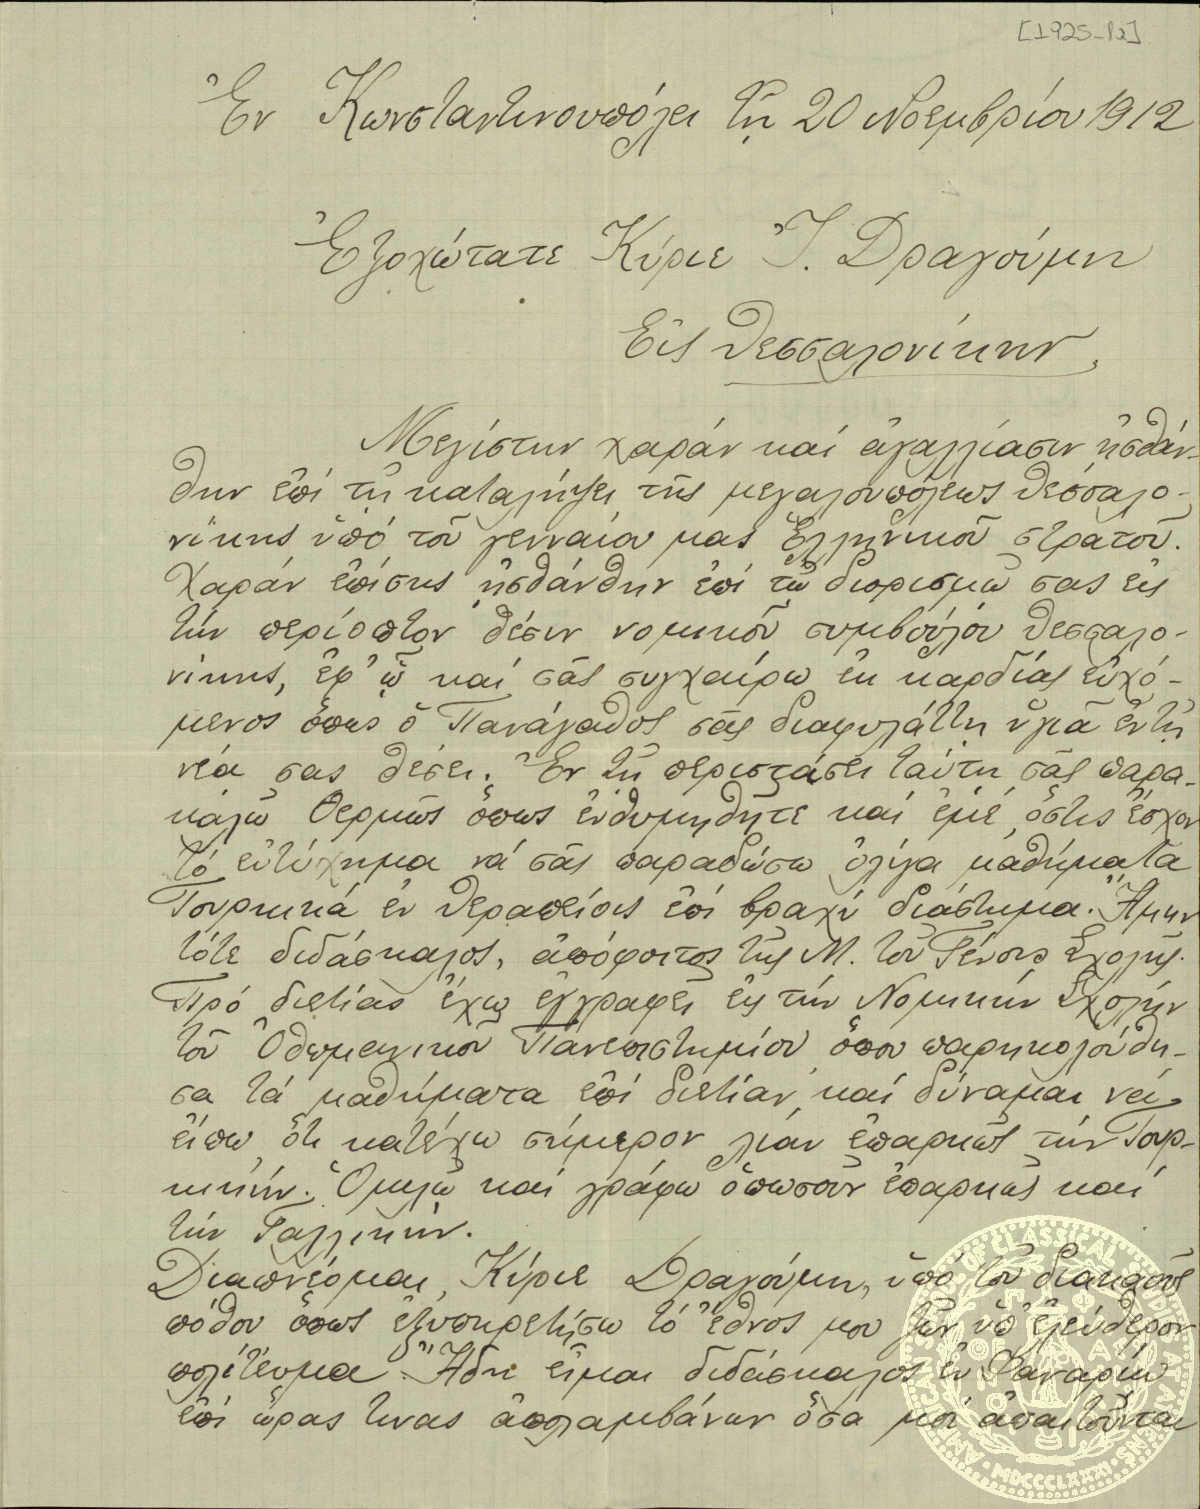 [1925_12]
Ἐν Κωνσταντινουπόλει τῇ 20 Νοεμβρίου 1912
Ἐξοχώτατε Κύριε Ἴ. Δραγούμη
Εἰς Θεσσαλονίκην.
Μεγίστην χαράν καί ἀγαλλίασιν ᾐσθάν-
θην ἐπί τῇ καταλήψει τῆς μεγαλουπόλεως Θεσσαλο-
νίκης ὑπό τοῦ γενναίου μας Ἑλληνικοῦ στρατοῦ.
Χαράν ἐπίσης ᾐσθάνθην ἐπί τῷ διορισμῷ σας εἰς
τήν περίοπτον θέσιν νομικοῦ συμβούλου Θεσσαλο-
νίκης, ἐφ' ᾧ καί σᾶς συγχαίρω ἐκ καρδίας εὐχό-
μενος ὅπως ὁ Πανάγαθος σᾶς διαφυλάττῃ ὑγιᾶ ἐν τῇ
νέᾳ σας θέσει. Ἐν τῇ περιστάσει ταύτῃ σᾶς παρα-
καλῶ θερμῶς ὅπως ἐνθυμηθῆτε καί ἐμέ, ὅστις ἔσχον
τό εὐτύχημα νά σᾶς παραδώσω ὀλίγα μαθήματα
Τουρκικά ἐν Θεραπείοις ἐπί βραχύ διάστημα. Ἤμην
τότε διδάσκαλος, ἀπόφοιτος τῆς Μ. τοῦ Γένους Σχολῆς.
Πρό διετίας ἔχω ἐγγραφεῖ εἰς τήν Νομικήν Σχολήν
τοῦ Ὀθωμανικοῦ Πανεπιστημίου ὅπου παρηκολούθη-
σα τά μαθήματα ἐπί διετίαν καί δύναμαι νά
εἴπω ὅτι κατέχω σήμερον λίαν ἐπαρκῶς τήν Τουρ-
κικήν. Ὁμιλῶ καί γράφω ὁπωσοῦν ἐπαρκῶς καί
τήν Γαλλικήν.
Διαπνέομαι, Κύριε Δραγούμη, ὑπό τοῦ διακαοῦς
πόθου ὅπως ἐξυπηρετήσω τό ἔθνος μου ζῶν ὑπ' ἐλεύθερον
πολίτευμα. Ἤδη εἶμαι διδάσκαλος ἐν Φαναρίῳ
ἐπί ὥρας τινας ἀπολαμβάνων ὅσα μοί ἀπαιτοῦνται
AMERICAN SCHOOL OF CLASSICAL STUDIES AT ATHENS · MDCCCLXXXI ·